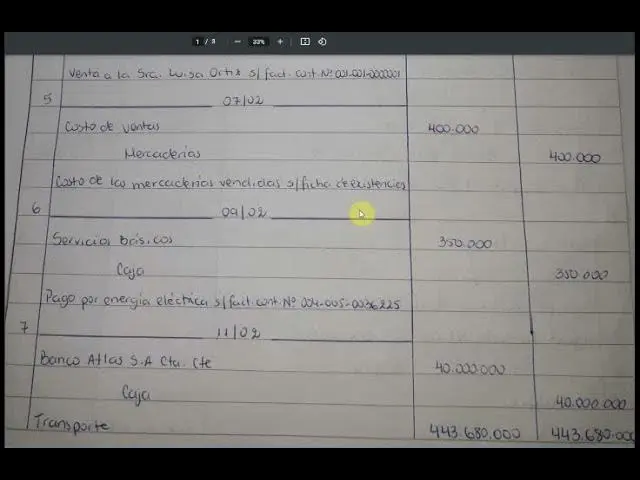 1 / 3 — 33% +
Venta a la Sra. Luisa Ortiz s/ fact. cont. Nº 001-001-0000001
5 07/02
Costo de ventas 400.000
Mercaderías 400.000
Costo de las mercaderías vendidas s/ficha de existencias
6 09/02
Servicios básicos 350.000
Caja 350.000
Pago por energía eléctrica s/fact. cont. Nº 004-005-0036225
7 11/02
Banco Atlas S.A Cta. Cte 40.000.000
Caja 40.000.000
Transporte 443.680.000 443.680.000